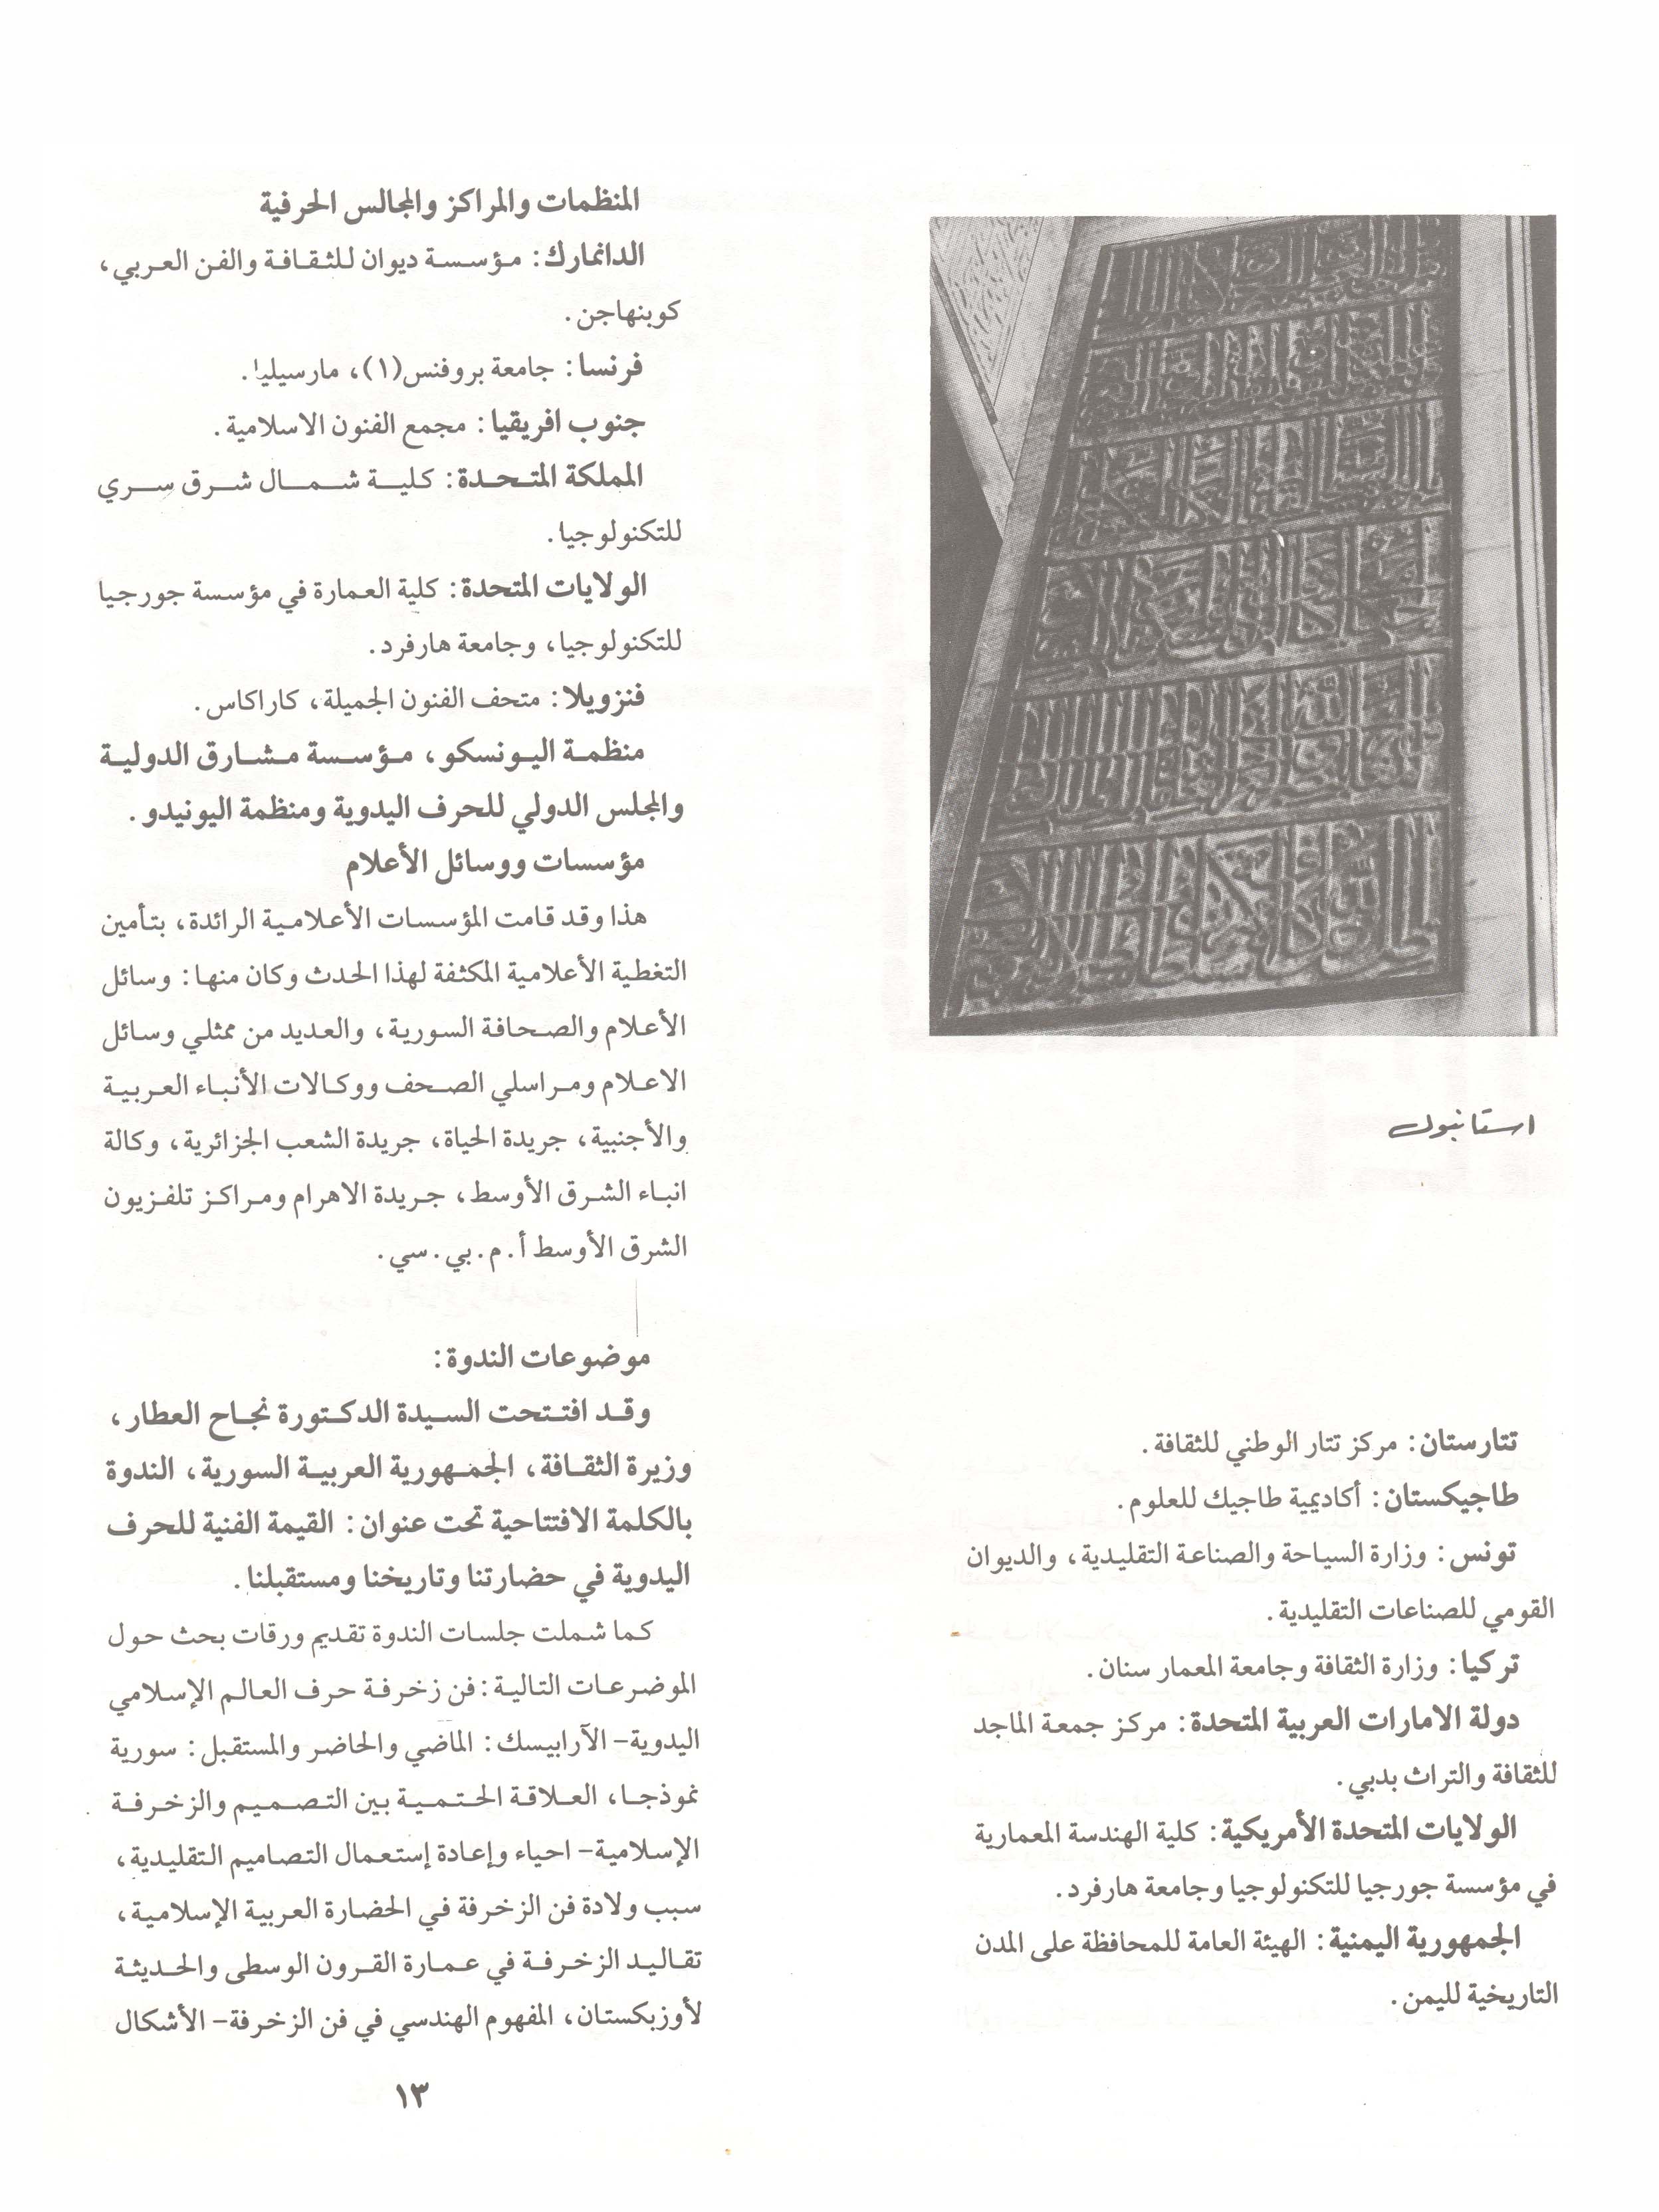 استانبول
تتارستان: مركز تتار الوطني للثقافة.
طاجيكستان: أكاديمية طاجيك للعلوم.
تونس: وزارة السياحة والصناعة التقليدية، والديوان
القومي للصناعات التقليدية.
تركيا: وزارة الثقافة وجامعة المعمار سنان.
دولة الامارات العربية المتحدة: مركز جمعة الماجد
للثقافة والتراث بدبي.
الولايات المتحدة الأمريكية: كلية الهندسة المعمارية
في مؤسسة جورجيا للتكنولوجيا وجامعة هارفرد.
الجمهورية اليمنية: الهيئة العامة للمحافظة على المدن
التاريخية لليمن.
المنظمات والمراكز والمجالس الحرفية
الدانمارك: مؤسسة ديوان للثقافة والفن العربي،
كوبنهاجن.
فرنسا: جامعة بروفنس(١)، مارسيليا.
جنوب افريقيا: مجمع الفنون الاسلامية.
المملكة المتحدة: كلية شمال شرق سري
للتكنولوجيا.
الولايات المتحدة: كلية العمارة في مؤسسة جورجيا
للتكنولوجيا، وجامعة هارفرد.
فنزويلا: متحف الفنون الجميلة، كاراكاس.
منظمة اليونسكو، مؤسسة مشارق الدولية
والمجلس الدولي للحرف اليدوية ومنظمة اليونيدو.
مؤسسات ووسائل الأعلام
هذا وقد قامت المؤسسات الأعلامية الرائدة، بتأمين
التغطية الأعلامية المكثفة لهذا الحدث وكان منها: وسائل
الأعلام والصحافة السورية، والعديد من ممثلي وسائل
الاعلام ومراسلي الصحف ووكالات الأنباء العربية
والأجنبية، جريدة الحياة، جريدة الشعب الجزائرية، وكالة
انباء الشرق الأوسط، جريدة الاهرام ومراكز تلفزيون
الشرق الأوسط أ.م.بي.سي.
موضوعات الندوة:
وقد افتتحت السيدة الدكتورة نجاح العطار،
وزيرة الثقافة، الجمهورية العربية السورية، الندوة
بالكلمة الافتتاحية تحت عنوان: القيمة الفنية للحرف
اليدوية في حضارتنا وتاريخنا ومستقبلنا.
كما شملت جلسات الندوة تقديم ورقات بحث حول
الموضرعات التالية: فن زخرفة حرف العالم الإسلامي
اليدوية- الآرابيسك: الماضي والحاضر والمستقبل: سورية
نموذجا، العلاقة الحتمية بين التصميم والزخرفة
الإسلامية- احياء وإعادة إستعمال التصاميم التقليدية،
سبب ولادة فن الزخرفة في الحضارة العربية الإسلامية،
تقاليد الزخرفة في عمارة القرون الوسطى والحديثة
لأوزبكستان، المفهوم الهندسي في فن الزخرفة- الأشكال
١٣